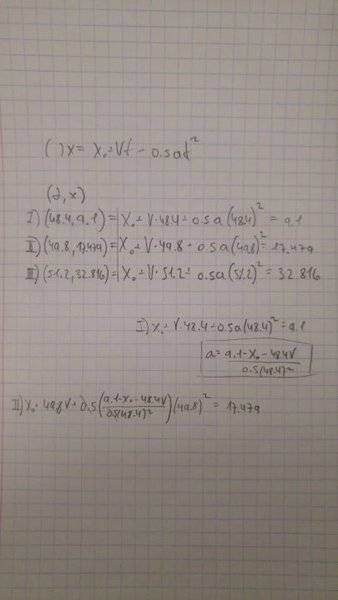 ( ) x = x₀ + Vt + 0.5at²
(t, x)
I) (48.4, 9.1) = x₀ + V·48.4 + 0.5a(48.4)² = 9.1
II) (49.8, 17.479) = x₀ + V·49.8 + 0.5a(49.8)² = 17.479
III) (51.2, 32.816) = x₀ + V·51.2 + 0.5a(51.2)² = 32.816
I) x₀ + V·48.4 + 0.5a(48.4)² = 9.1
a = 9.1 - x₀ - 48.4V / 0.5(48.4)²
II) x₀ + 49.8V + 0.5(9.1 - x₀ - 48.4V / 0.5(48.4)²)(49.8)² = 17.479